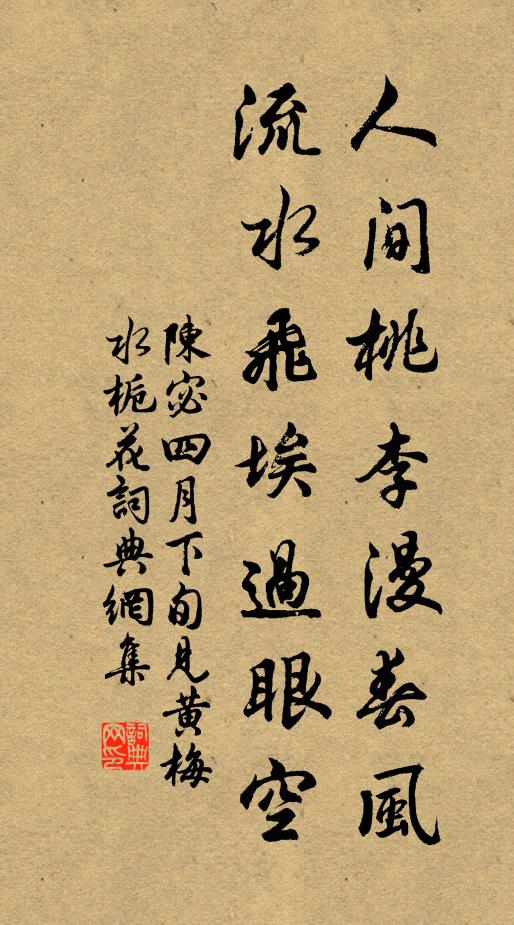 人間桃李漫春風
流水飛埃過眼空
陳宓四月下旬見黄梅
水栀花詞典網集
詞典網印